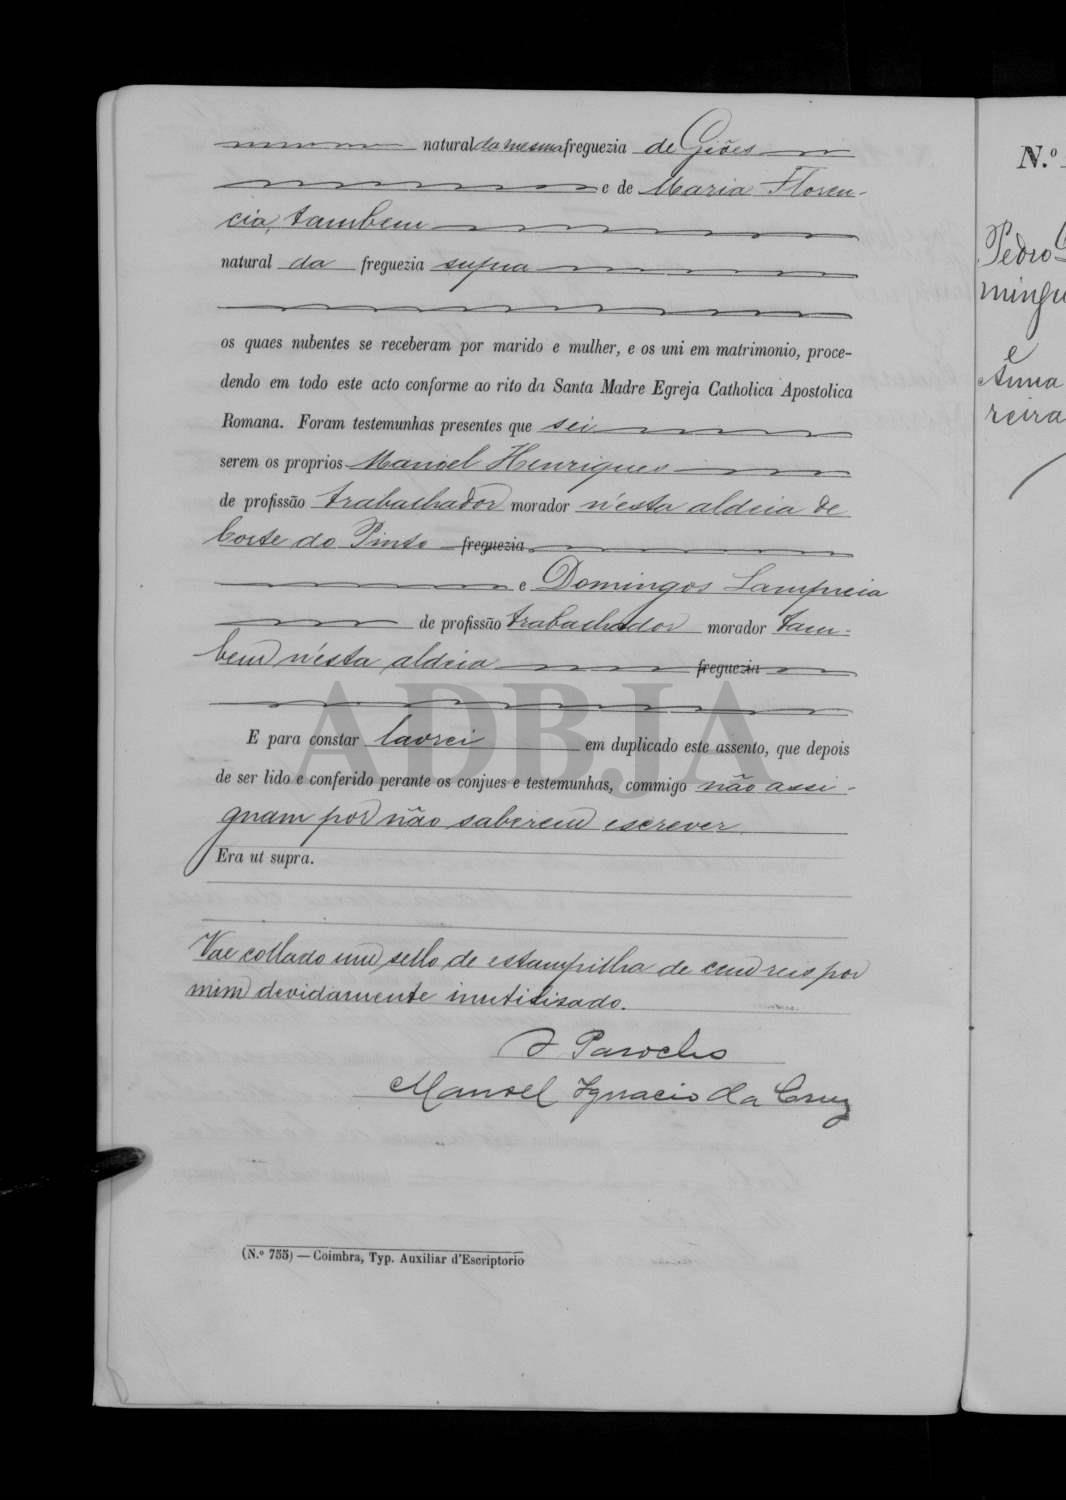 natural da mesma freguezia de Giões
e de Maria Floren-
cia, tambem
natural da freguezia supra
os quaes nubentes se receberam por marido e mulher, e os uni em matrimonio, proce-
dendo em todo este acto conforme ao rito da Santa Madre Egreja Catholica Apostolica
Romana. Foram testemunhas presentes que sei
serem os proprios Manoel Henriques
de profissão trabalhador morador n'esta aldeia de
Corte do Pinto freguezia
e Domingos Lampreia
de profissão trabalhador morador tam-
bem n'esta aldeia freguezia
ADBJA
E para constar lavrei em duplicado este assento, que depois
de ser lido e conferido perante os conjues e testemunhas, commigo não assi-
gnam por não saberem escrever
Era ut supra.
Vae collado um sello de estampilha de cem reis por
mim devidamente inutilisado.
O Parocho
Manoel Ignacio da Cruz
(N.º 755) — Coimbra, Typ. Auxiliar d'Escriptorio
N.º
Pedro
mingu
e
Anna
reira